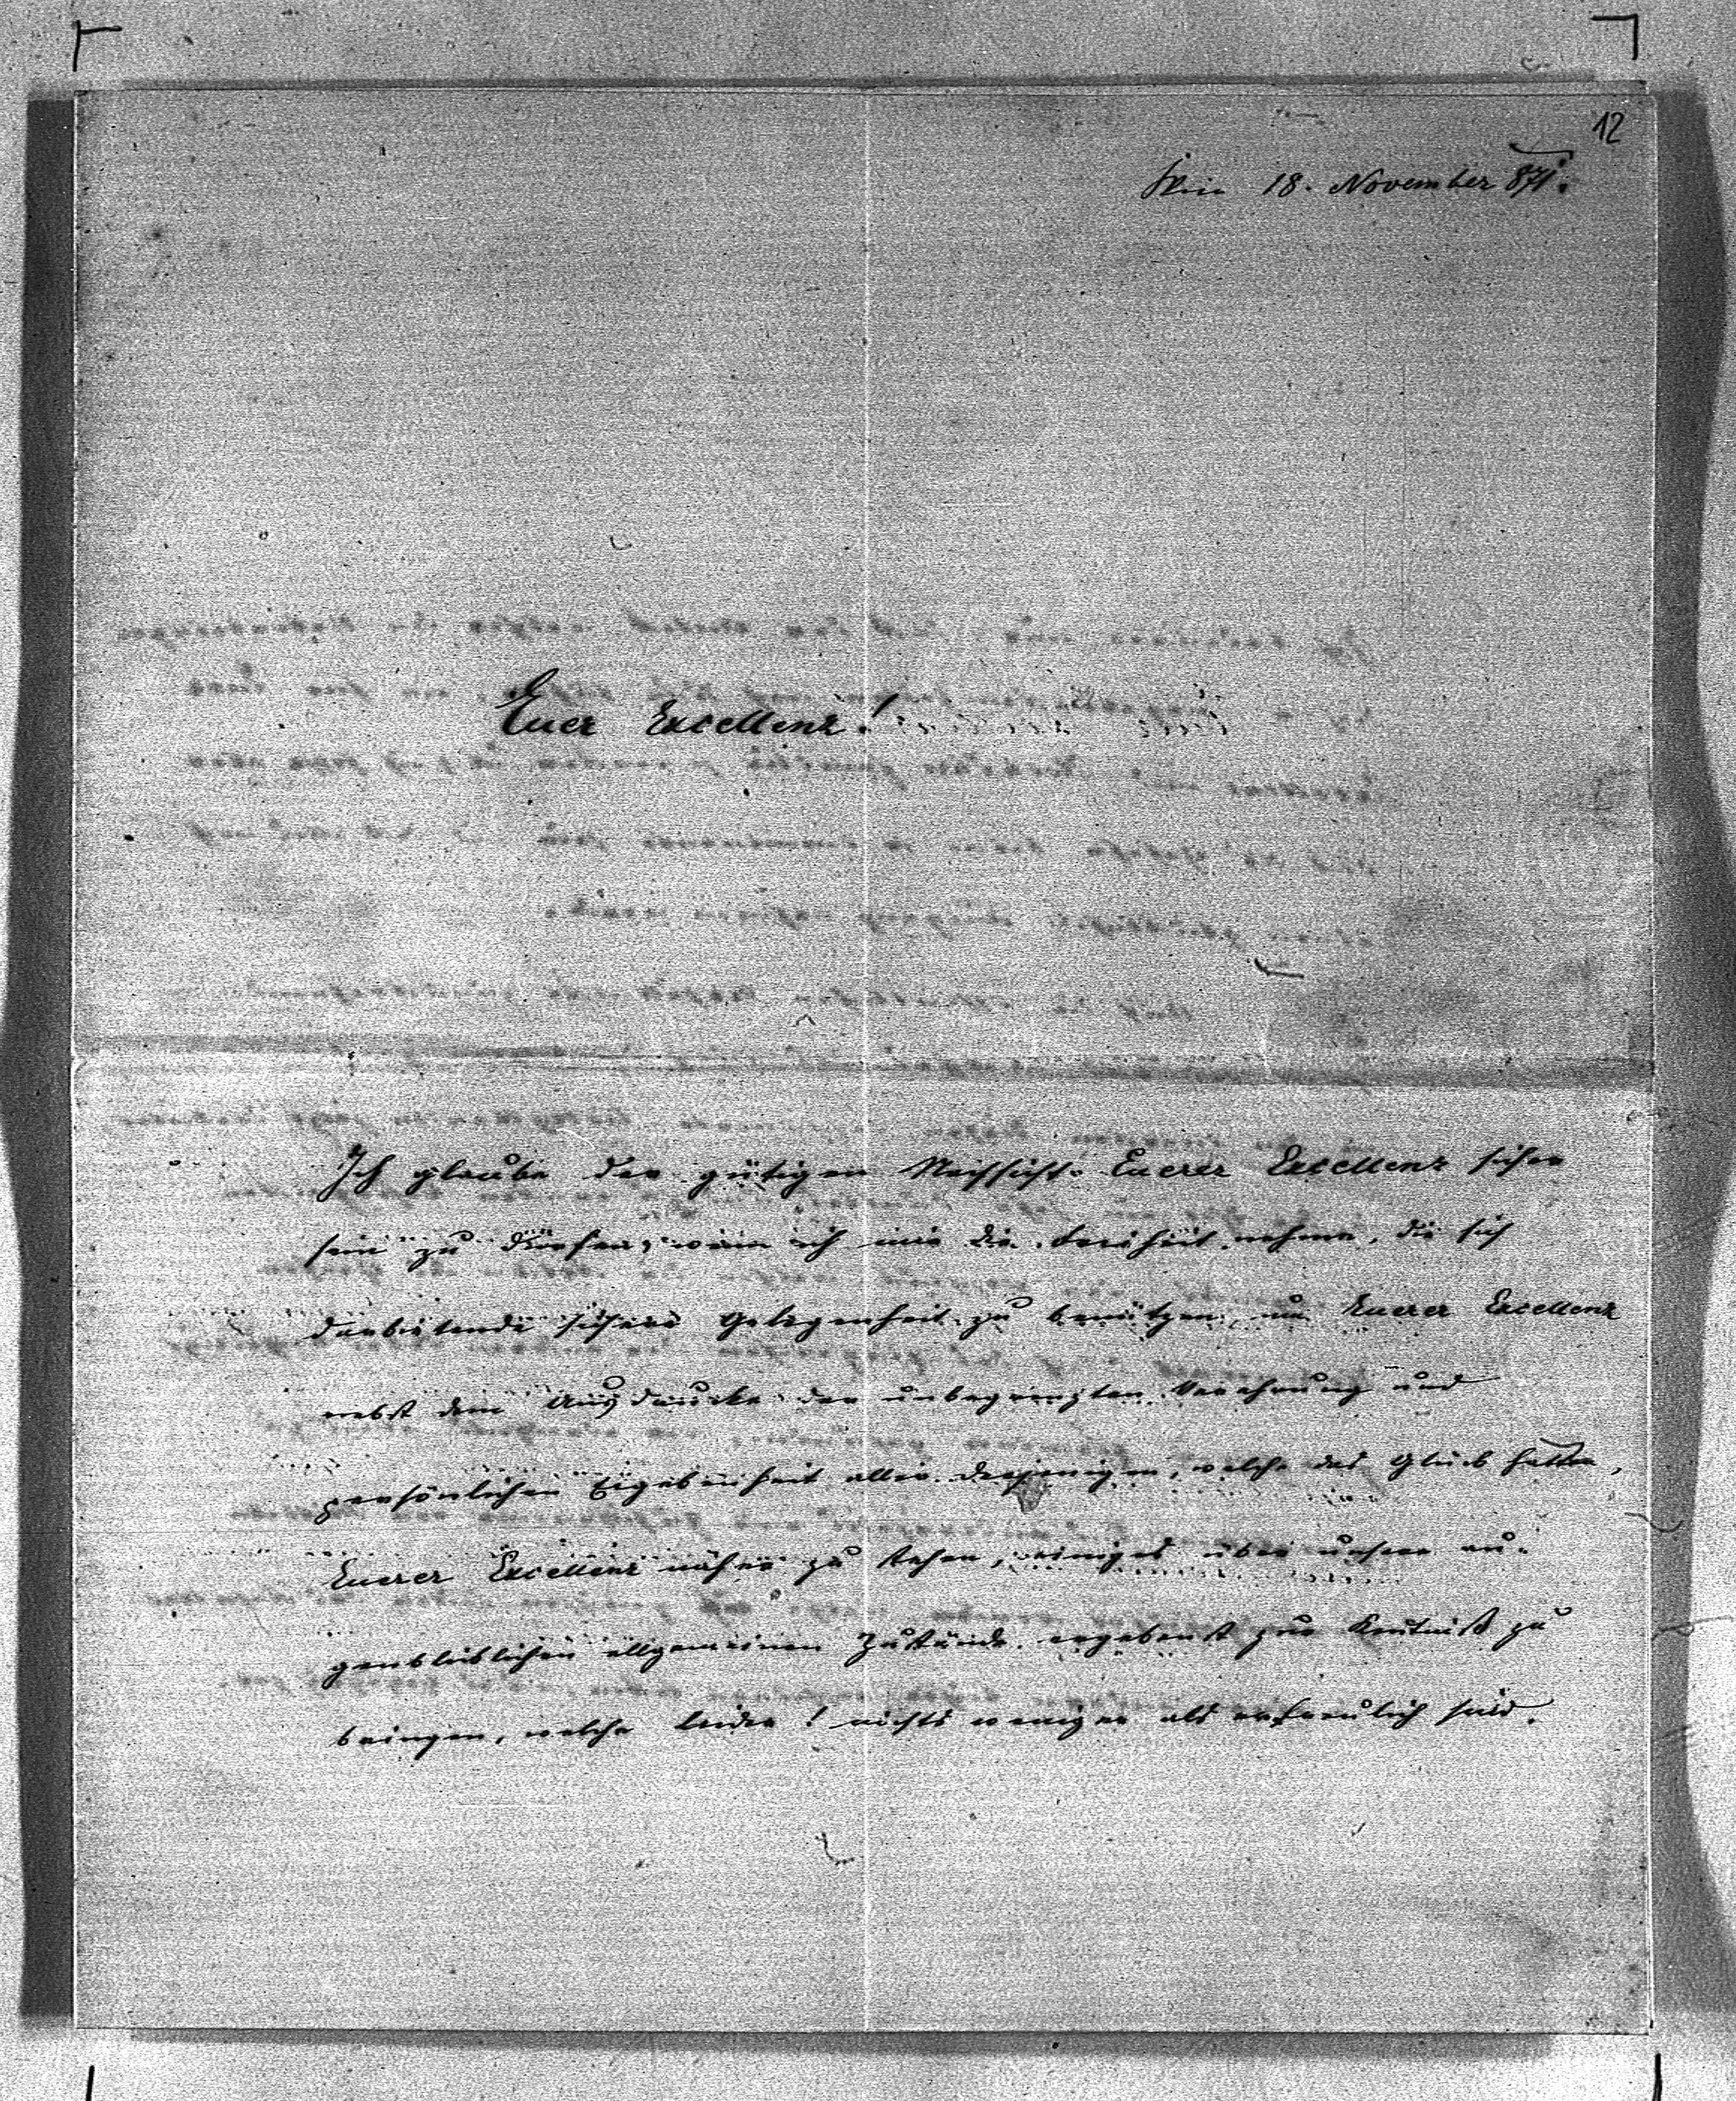 12
Wien 18. November 871.
Euer Excellenz!
Ich glaube der gütigen Nachsicht Euerer Excellenz sicher
sein zu dürfen, wenn ich mir die Freiheit nehme, die sich
darbietende sichere Gelegenheit zu benützen, um Euerer Excellenz
nebst dem Ausdrucke der unbegrenzten Verehrung und
persönlichen Ergebenheit aller derjenigen, welche das Glück hatten,
Euerer Excellenz näher zu stehen, einiges über unsere au-
genbliklichen allgemeinen Zustände ergebenst zur Kentniß zu
bringen, welche leider! nichts weniger als erfreulich sind.